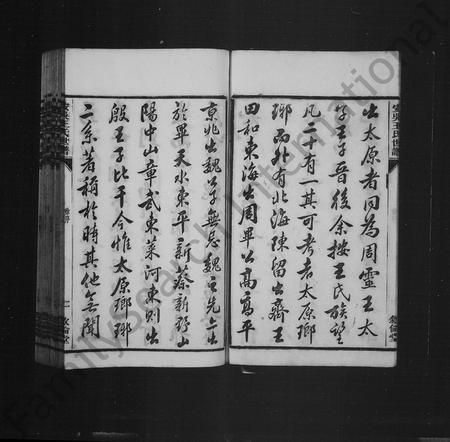 出太原者同為周靈王太
子王子晉後余按王氏族望
凡二十有一其可考者太原瑯
琊而外有北海陳留出齊王
田和東海出周畢公高高平
京兆出魏公子無忌魏之先亦出
於畢天水東平新蔡新野山
陽中山章武東萊河東則出
殷王子比干今惟太原瑯琊
二系著稱於時其他無聞
FamilySearch International